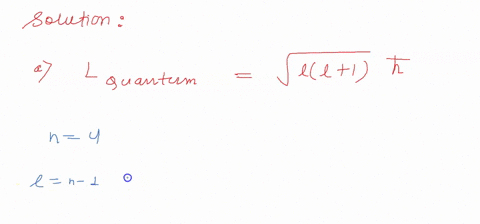 Solution:
a) L quantum = √l(l+1) ħ
n = 4
l = n-1